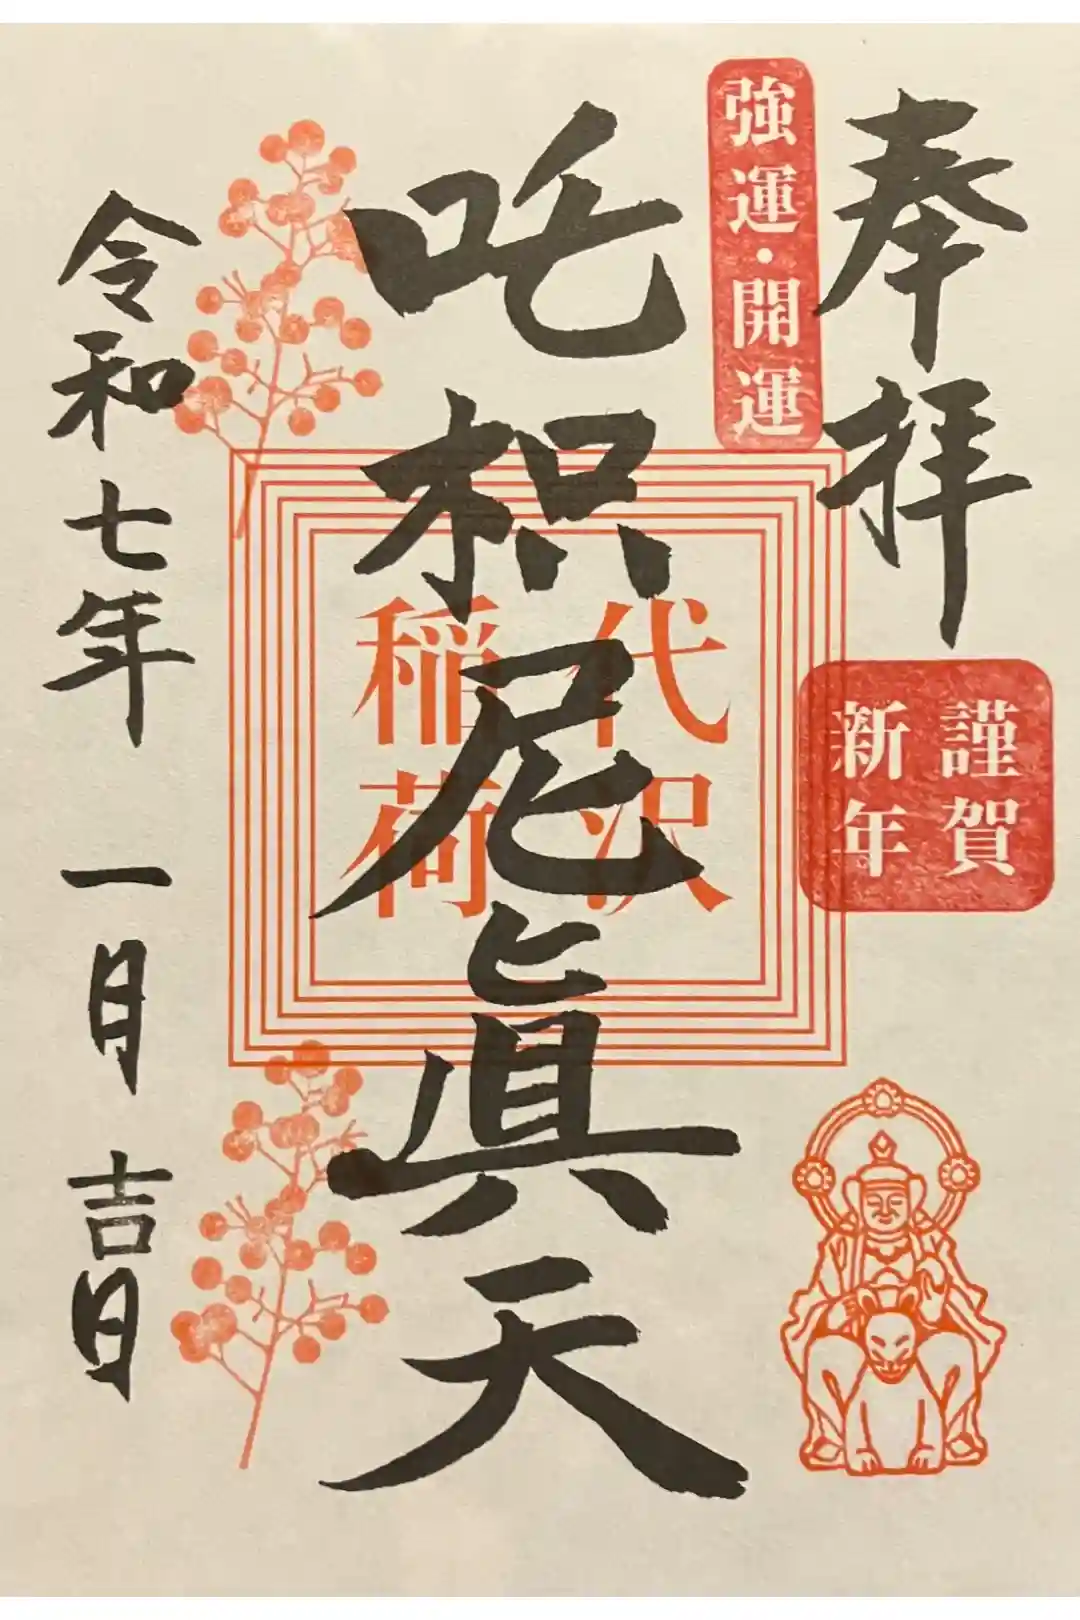 奉拝
強運・開運
謹賀
新年
吒枳尼眞天
代沢
稲荷
令和七年 一月 吉日